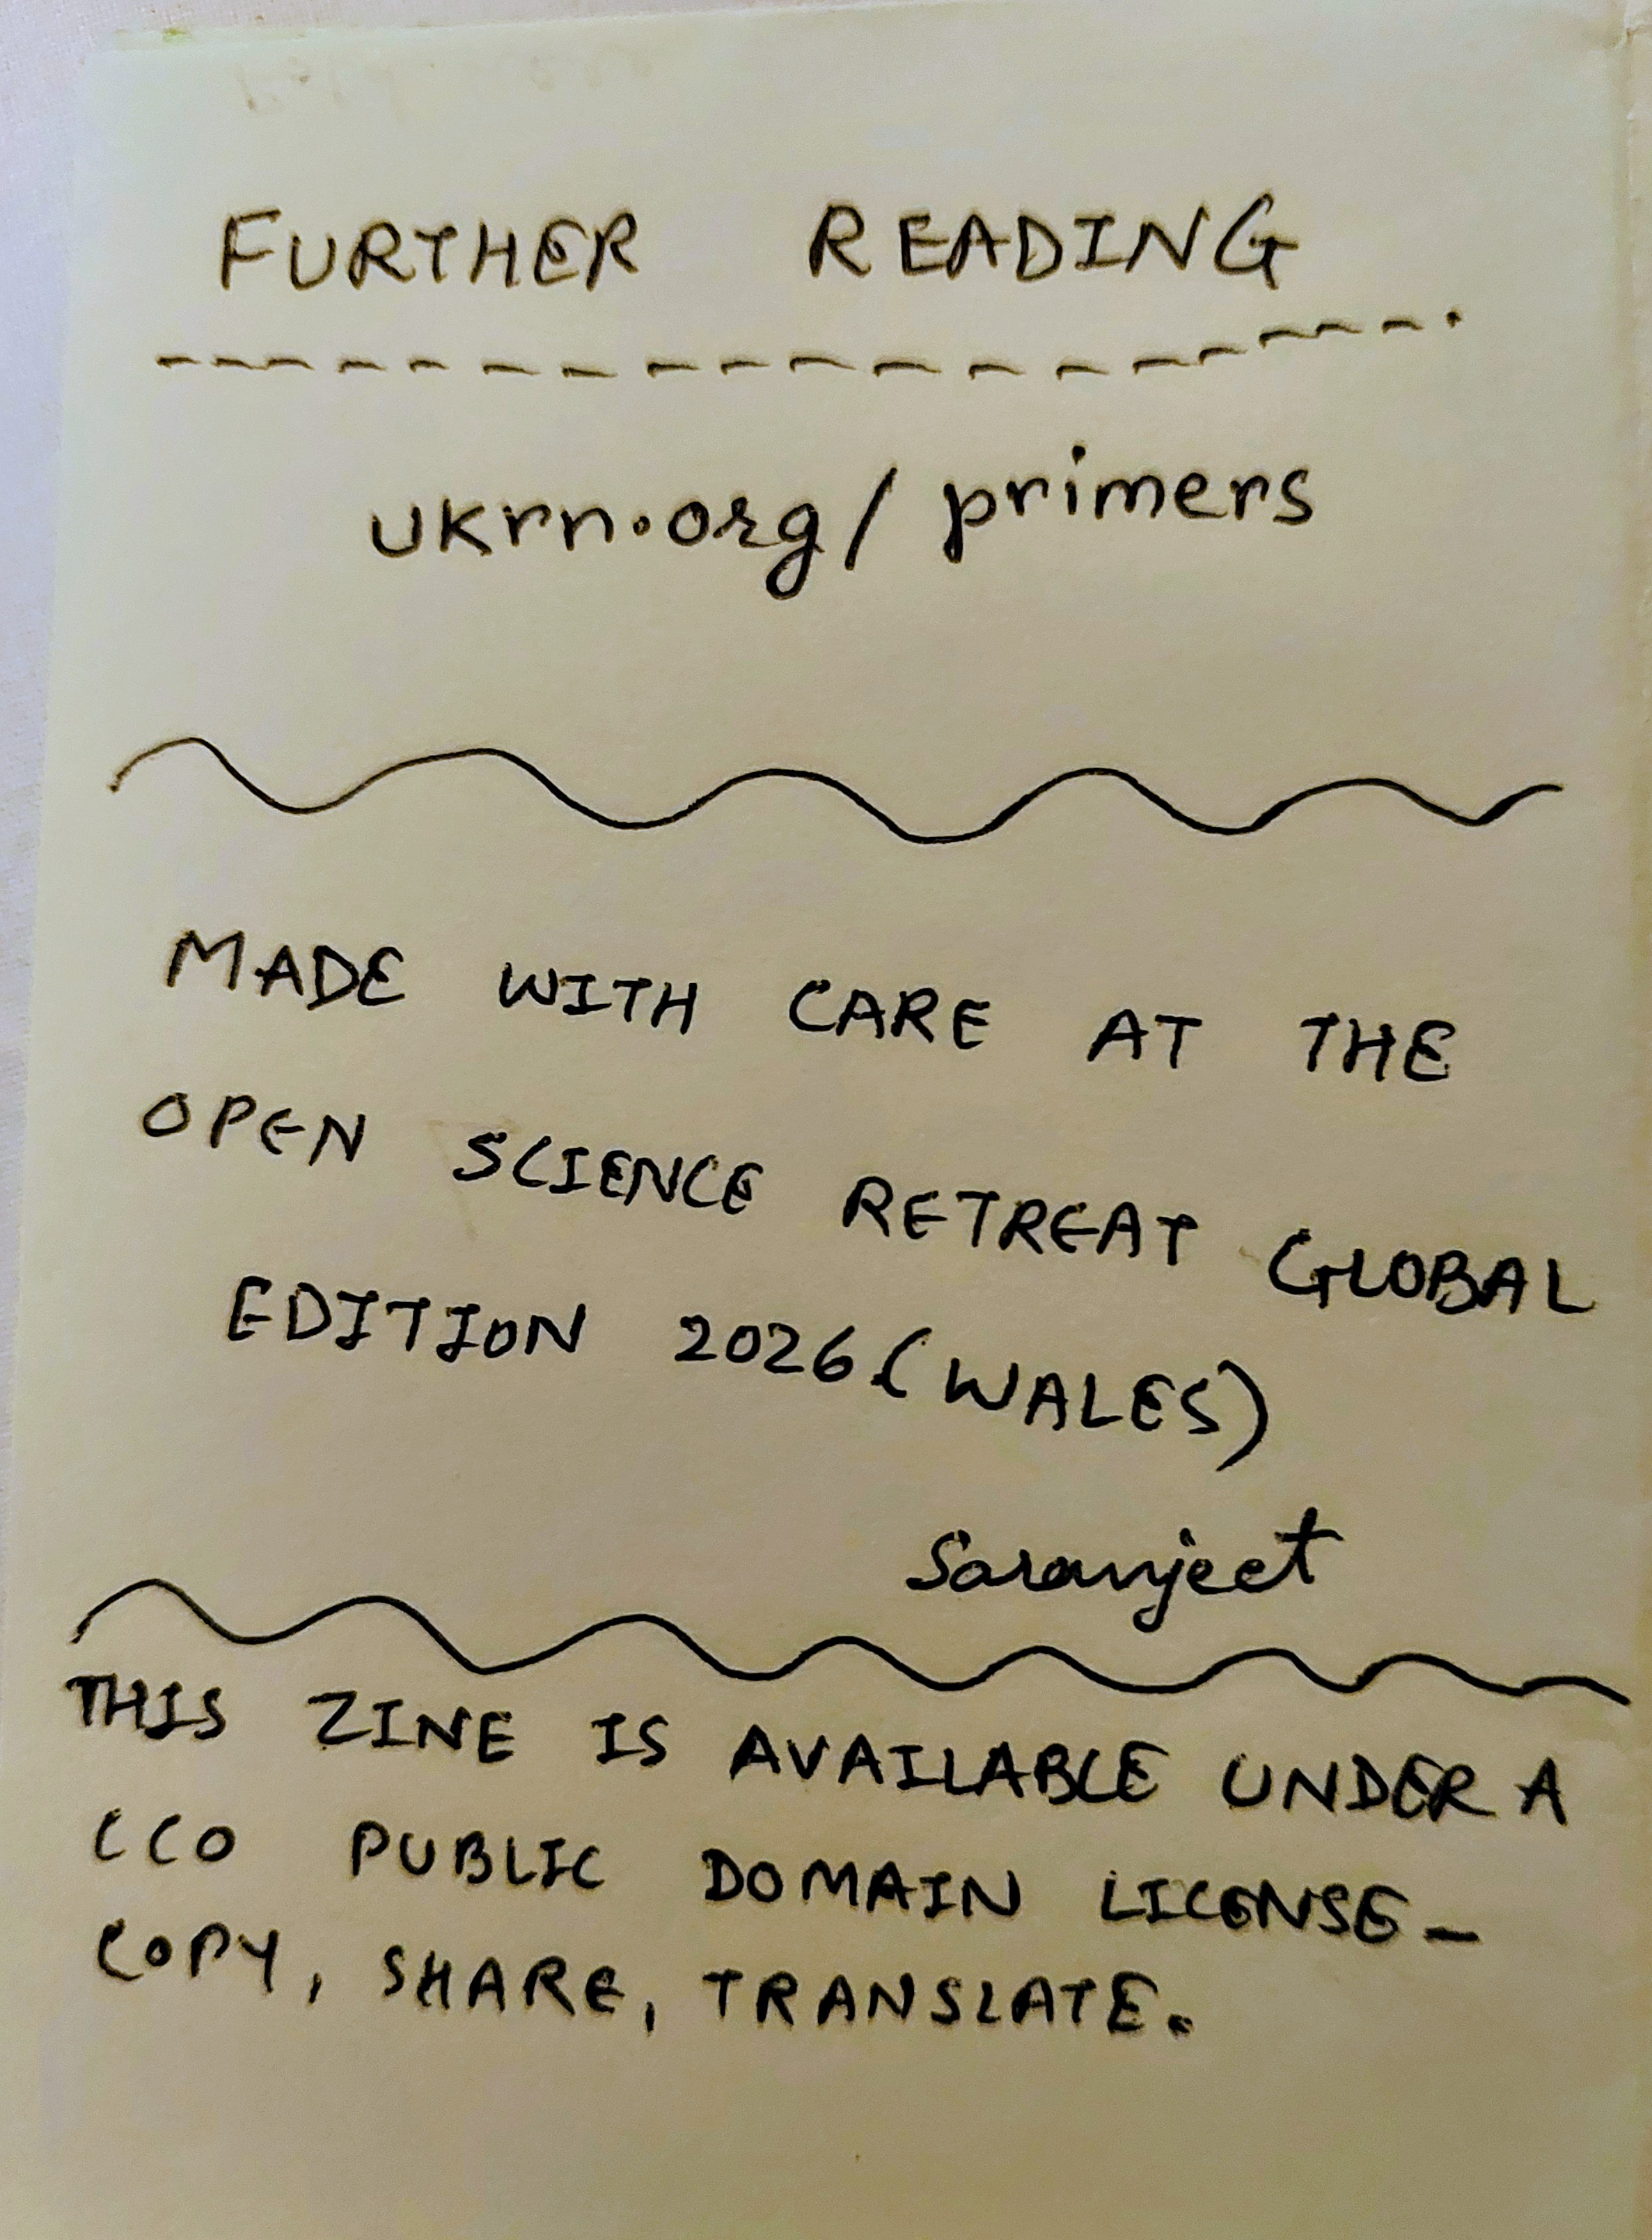 FURTHER READING
ukrn.org/primers
MADE WITH CARE AT THE
OPEN SCIENCE RETREAT GLOBAL
EDITION 2026 (WALES)
Saranjeet
THIS ZINE IS AVAILABLE UNDER A
CC0 PUBLIC DOMAIN LICENSE-
COPY, SHARE, TRANSLATE.